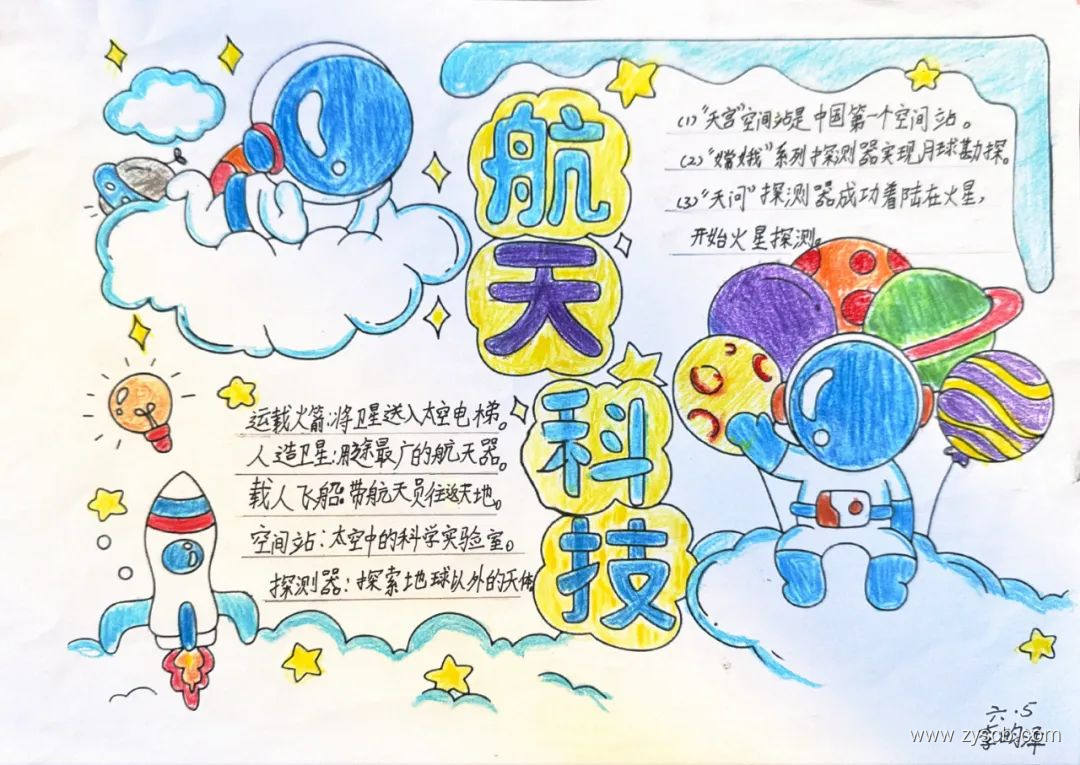 航
天
科
技
(1)“天宫”空间站是中国第一个空间站。
(2)“嫦娥”系列探测器实现月球勘探。
(3)“天问”探测器成功着陆在火星,
开始火星探测。
运载火箭:将卫星送入太空电梯。
人造卫星:用途最广的航天器。
载人飞船:带航天员往返天地。
空间站:太空中的科学实验室。
探测器:探索地球以外的天体
六.5